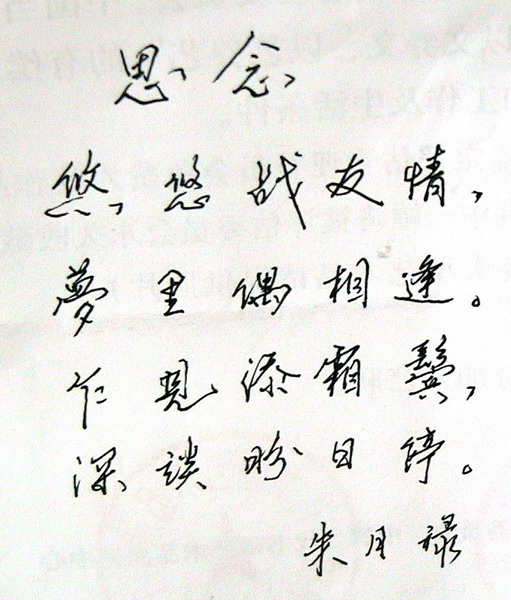 思念
悠悠战友情，
夢里偶相逢。
乍見添霜鬓，
深談盼日停。
朱月禄